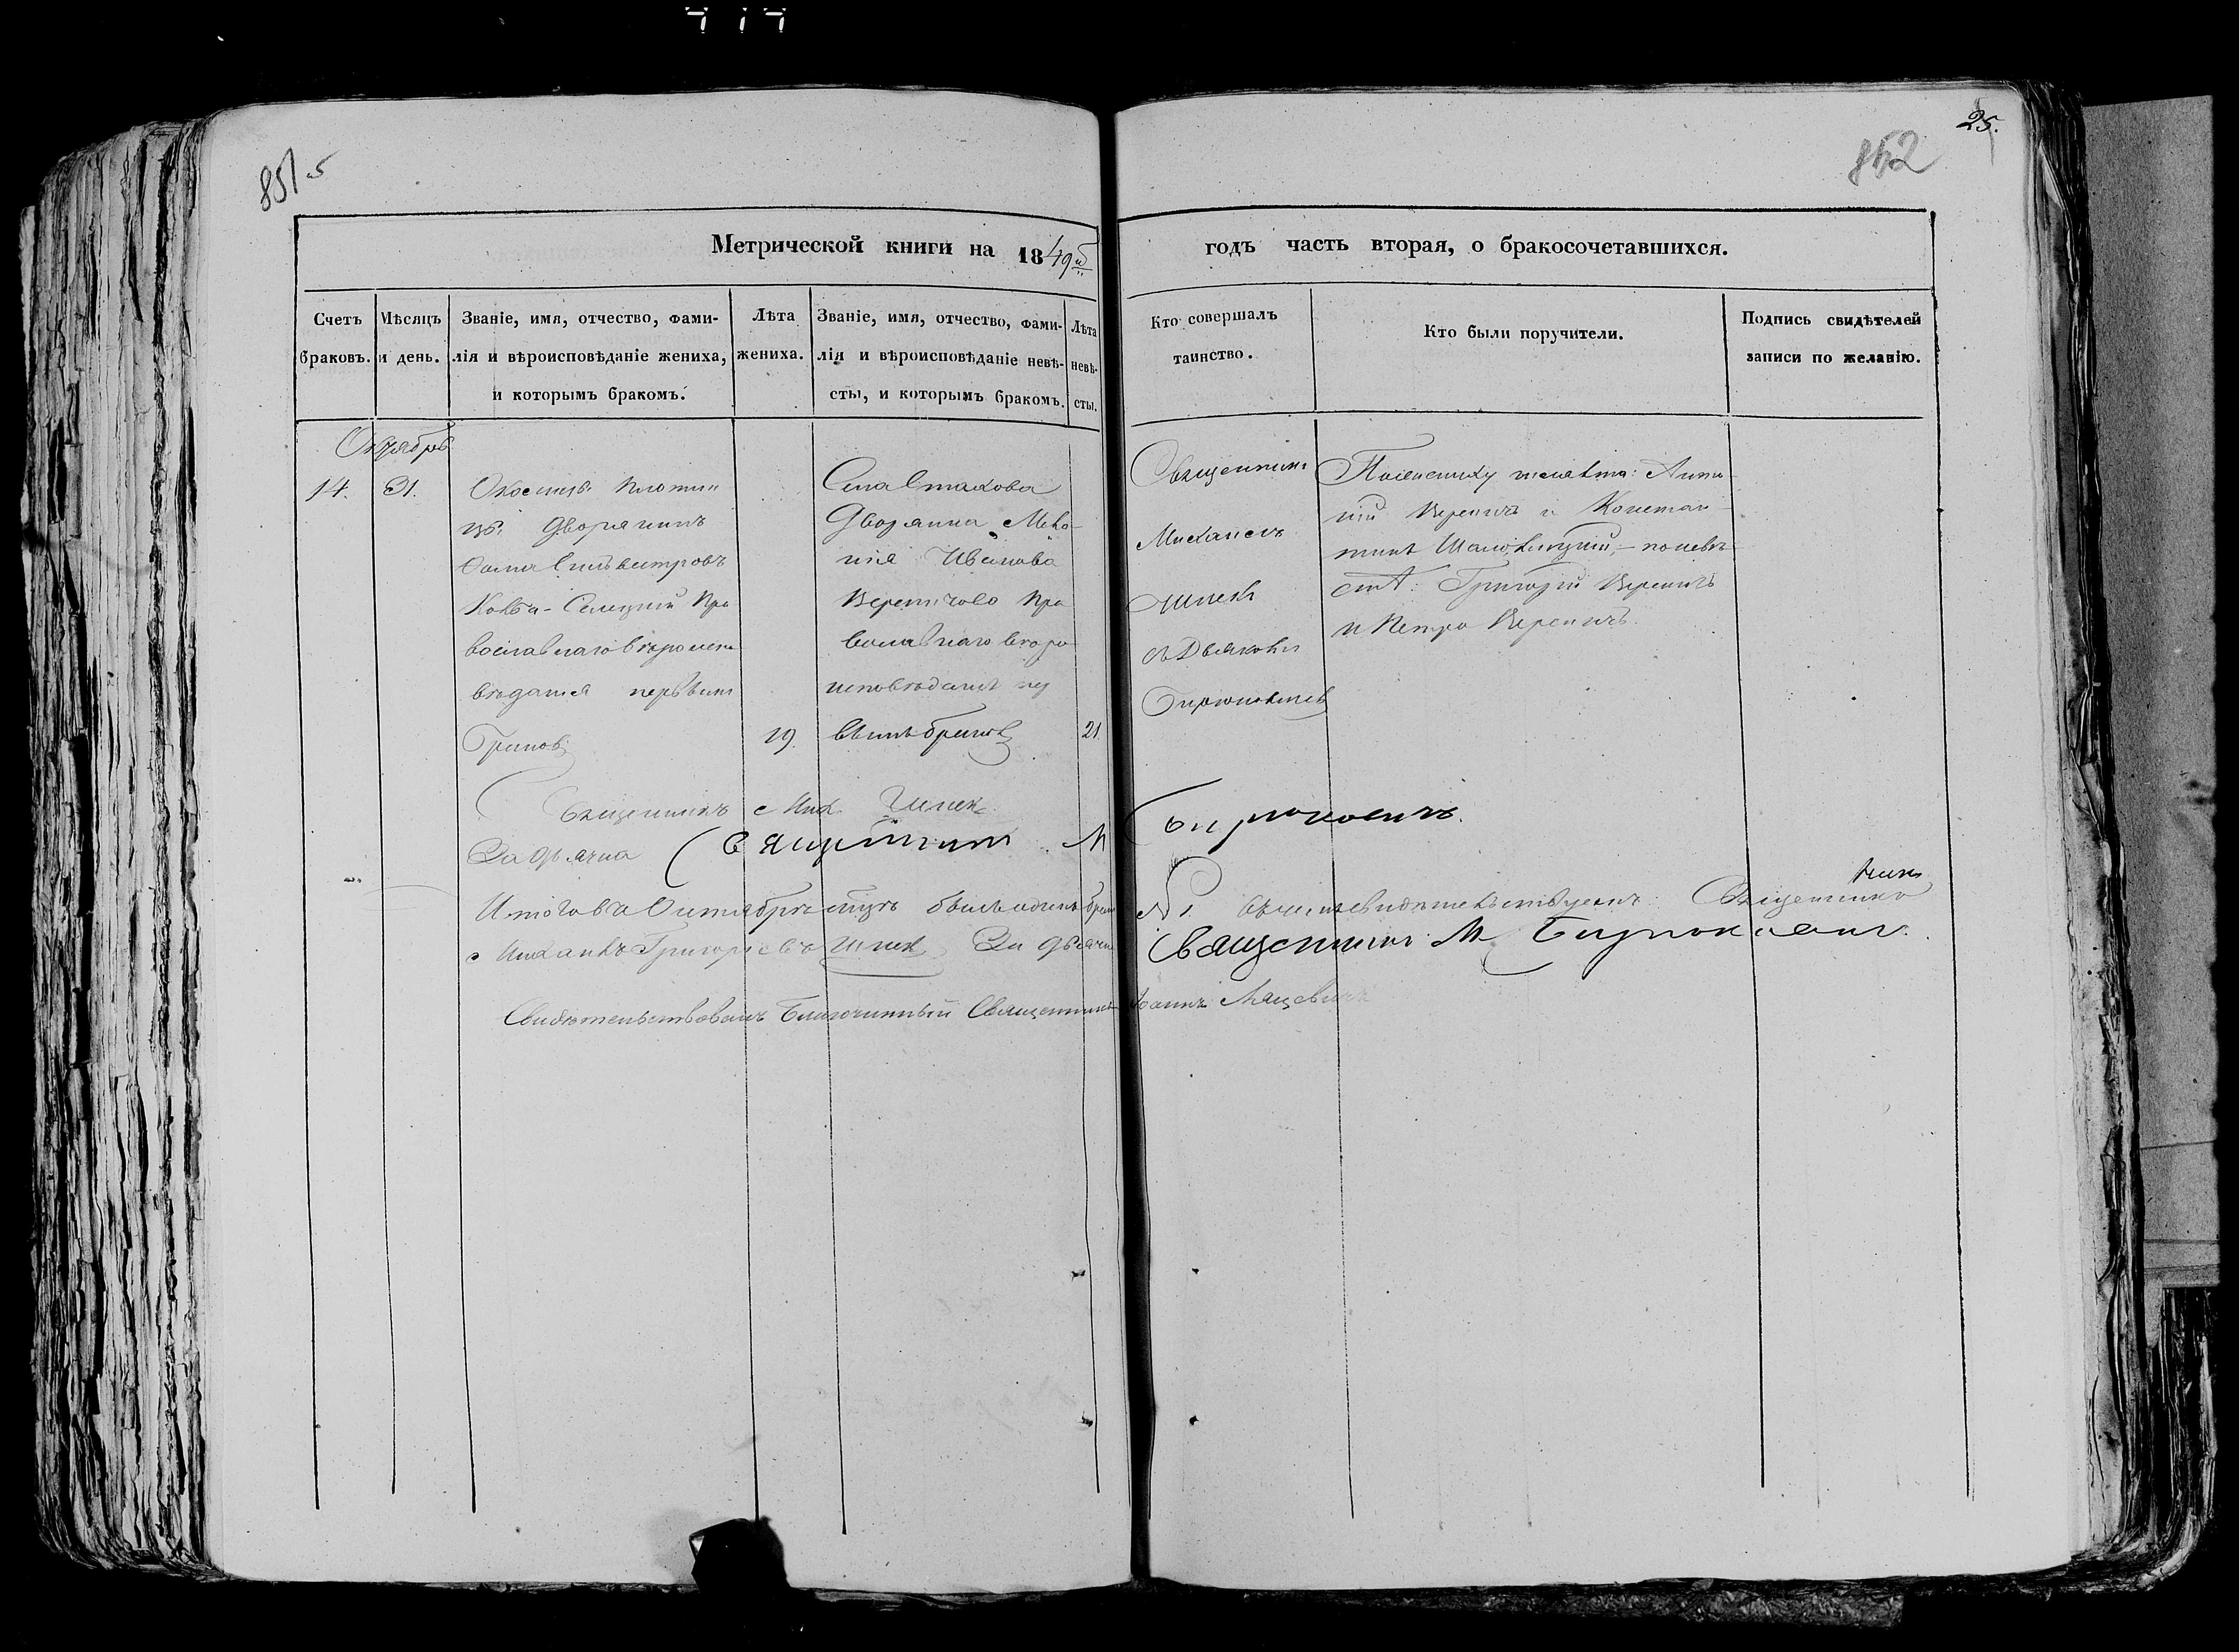 717
851
852
25.
Метрической книги на 1849й годъ часть вторая, о бракосочетавшихся.
Счетъ браковъ.
Мѣсяцъ и день.
Званіе, имя, отчество, фами-
лія и вѣроисповѣданіе жениха,
и которымъ бракомъ.
Лѣта
жениха.
Званіе, имя, отчество, фами-
лія и вѣроисповѣданіе невѣ-
сты, и которымъ бракомъ.
Лѣта
невѣ-
сты.
Кто совершалъ
таинство.
Кто были поручители.
Подпись свидѣтелей
записи по желанію.
Октябрь
14.
31.
Дворянинъ
Сильвестровъ
Пра
вославнаго вѣроиспо
вѣданія первымъ
бракомъ
19.
Села Стахова
Дворянка
Иванова
Вереничова Пра
вославнаго вѣро
исповѣданія пер
вымъ бракомъ
21.
Священникъ
Михаилъ
Шпек
съ Дьякомъ
Бирюковичъ
По женихѣ: Анто
ній Вереничъ и Констан
тинъ – по невѣ
стѣ: Григорій Вереничъ
и Петро Вереничъ.
Священникъ Мих. Шпек
За дьячка Священникъ М Бирюковичъ.
Итого въ Октябрѣ мцѣ былъ одинъ бракъ № 1 въ чемъ свидѣтельствуемъ Священникъ
Михаилъ Григорьевъ Шпек За дьячка Священникъ М Бирюковичъ.
Свидѣтельствовалъ Благочинный Священникъ Іоаннъ Мацевичъ